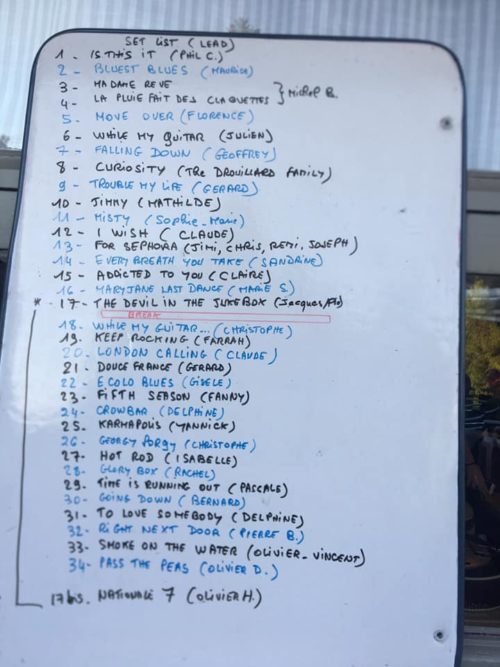 SET LIST (LEAD)
1 - IS THIS IT (PHIL C.)
2 - BLUEST BLUES (MAURICE)
3 - MADAME REVE
4 - LA PLUIE FAIT DES CLAQUETTES } Michel B.
5 - MOVE OVER (FLORENCE)
6 - WHILE MY GUITAR (JULIEN)
7 - FALLING DOWN (GEOFFREY)
8 - CURIOSITY (THE DROUILLARD FAMILY)
9 - TROUBLE MY LIFE (GERARD)
10 - JIMMY (MATHILDE)
11 - MISTY (Sophie-Marie)
12 - I WISH (CLAUDE)
13 - FOR SEPHORA (JIMI, CHRIS, REMI, JOSEPH)
14 - EVERY BREATH YOU TAKE (SANDRINE)
15 - ADDICTED TO YOU (CLAIRE)
16 - MARYJANE LAST DANCE (MARIE S.)
* - 17 - THE DEVIL IN THE JUKEBOX (Jacques/Flo)
BREAK
18 - WHILE MY GUITAR... (CHRISTOPHE)
19. KEEP ROCKING (FARRAH)
20. LONDON CALLING (CLAUDE)
21 - DOUCE FRANCE (GERARD)
22 - ECOLO BLUES (GISELE)
23 - FIFTH SEASON (FANNY)
24 - CROWBAR (DELPHINE)
25. KARMAPOLIS (YANNICK)
26 - GEORGY PORGY (CHRISTOPHE)
27 - HOT ROD (ISABELLE)
28 - GLORY BOX (RACHEL)
29. TIME IS RUNNING OUT (PASCALE)
30 - GOING DOWN (BERNARD)
31 - TO LOVE SOMEBODY (DELPHINE)
32 - RIGHT NEXT DOOR (PIERRE B.)
33 - SMOKE ON THE WATER (OLIVIER - VINCENT)
34 - PASS THE PEAS (OLIVIER D.)
17 bis. NATIONALE 7 (OLIVIER H.)